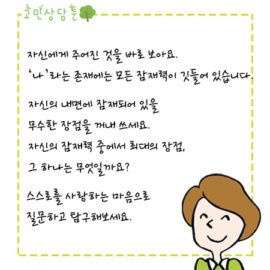 고민상담툰
자신에게 주어진 것을 바로 보아요.
'나'라는 존재에는 모든 잠재력이 깃들어 있습니다.
자신의 내면에 잠재되어 있을
무수한 장점을 꺼내 쓰세요.
자신의 잠재력 중에서 최대의 장점,
그 하나는 무엇일까요?
스스로를 사랑하는 마음으로
질문하고 탐구해보세요.